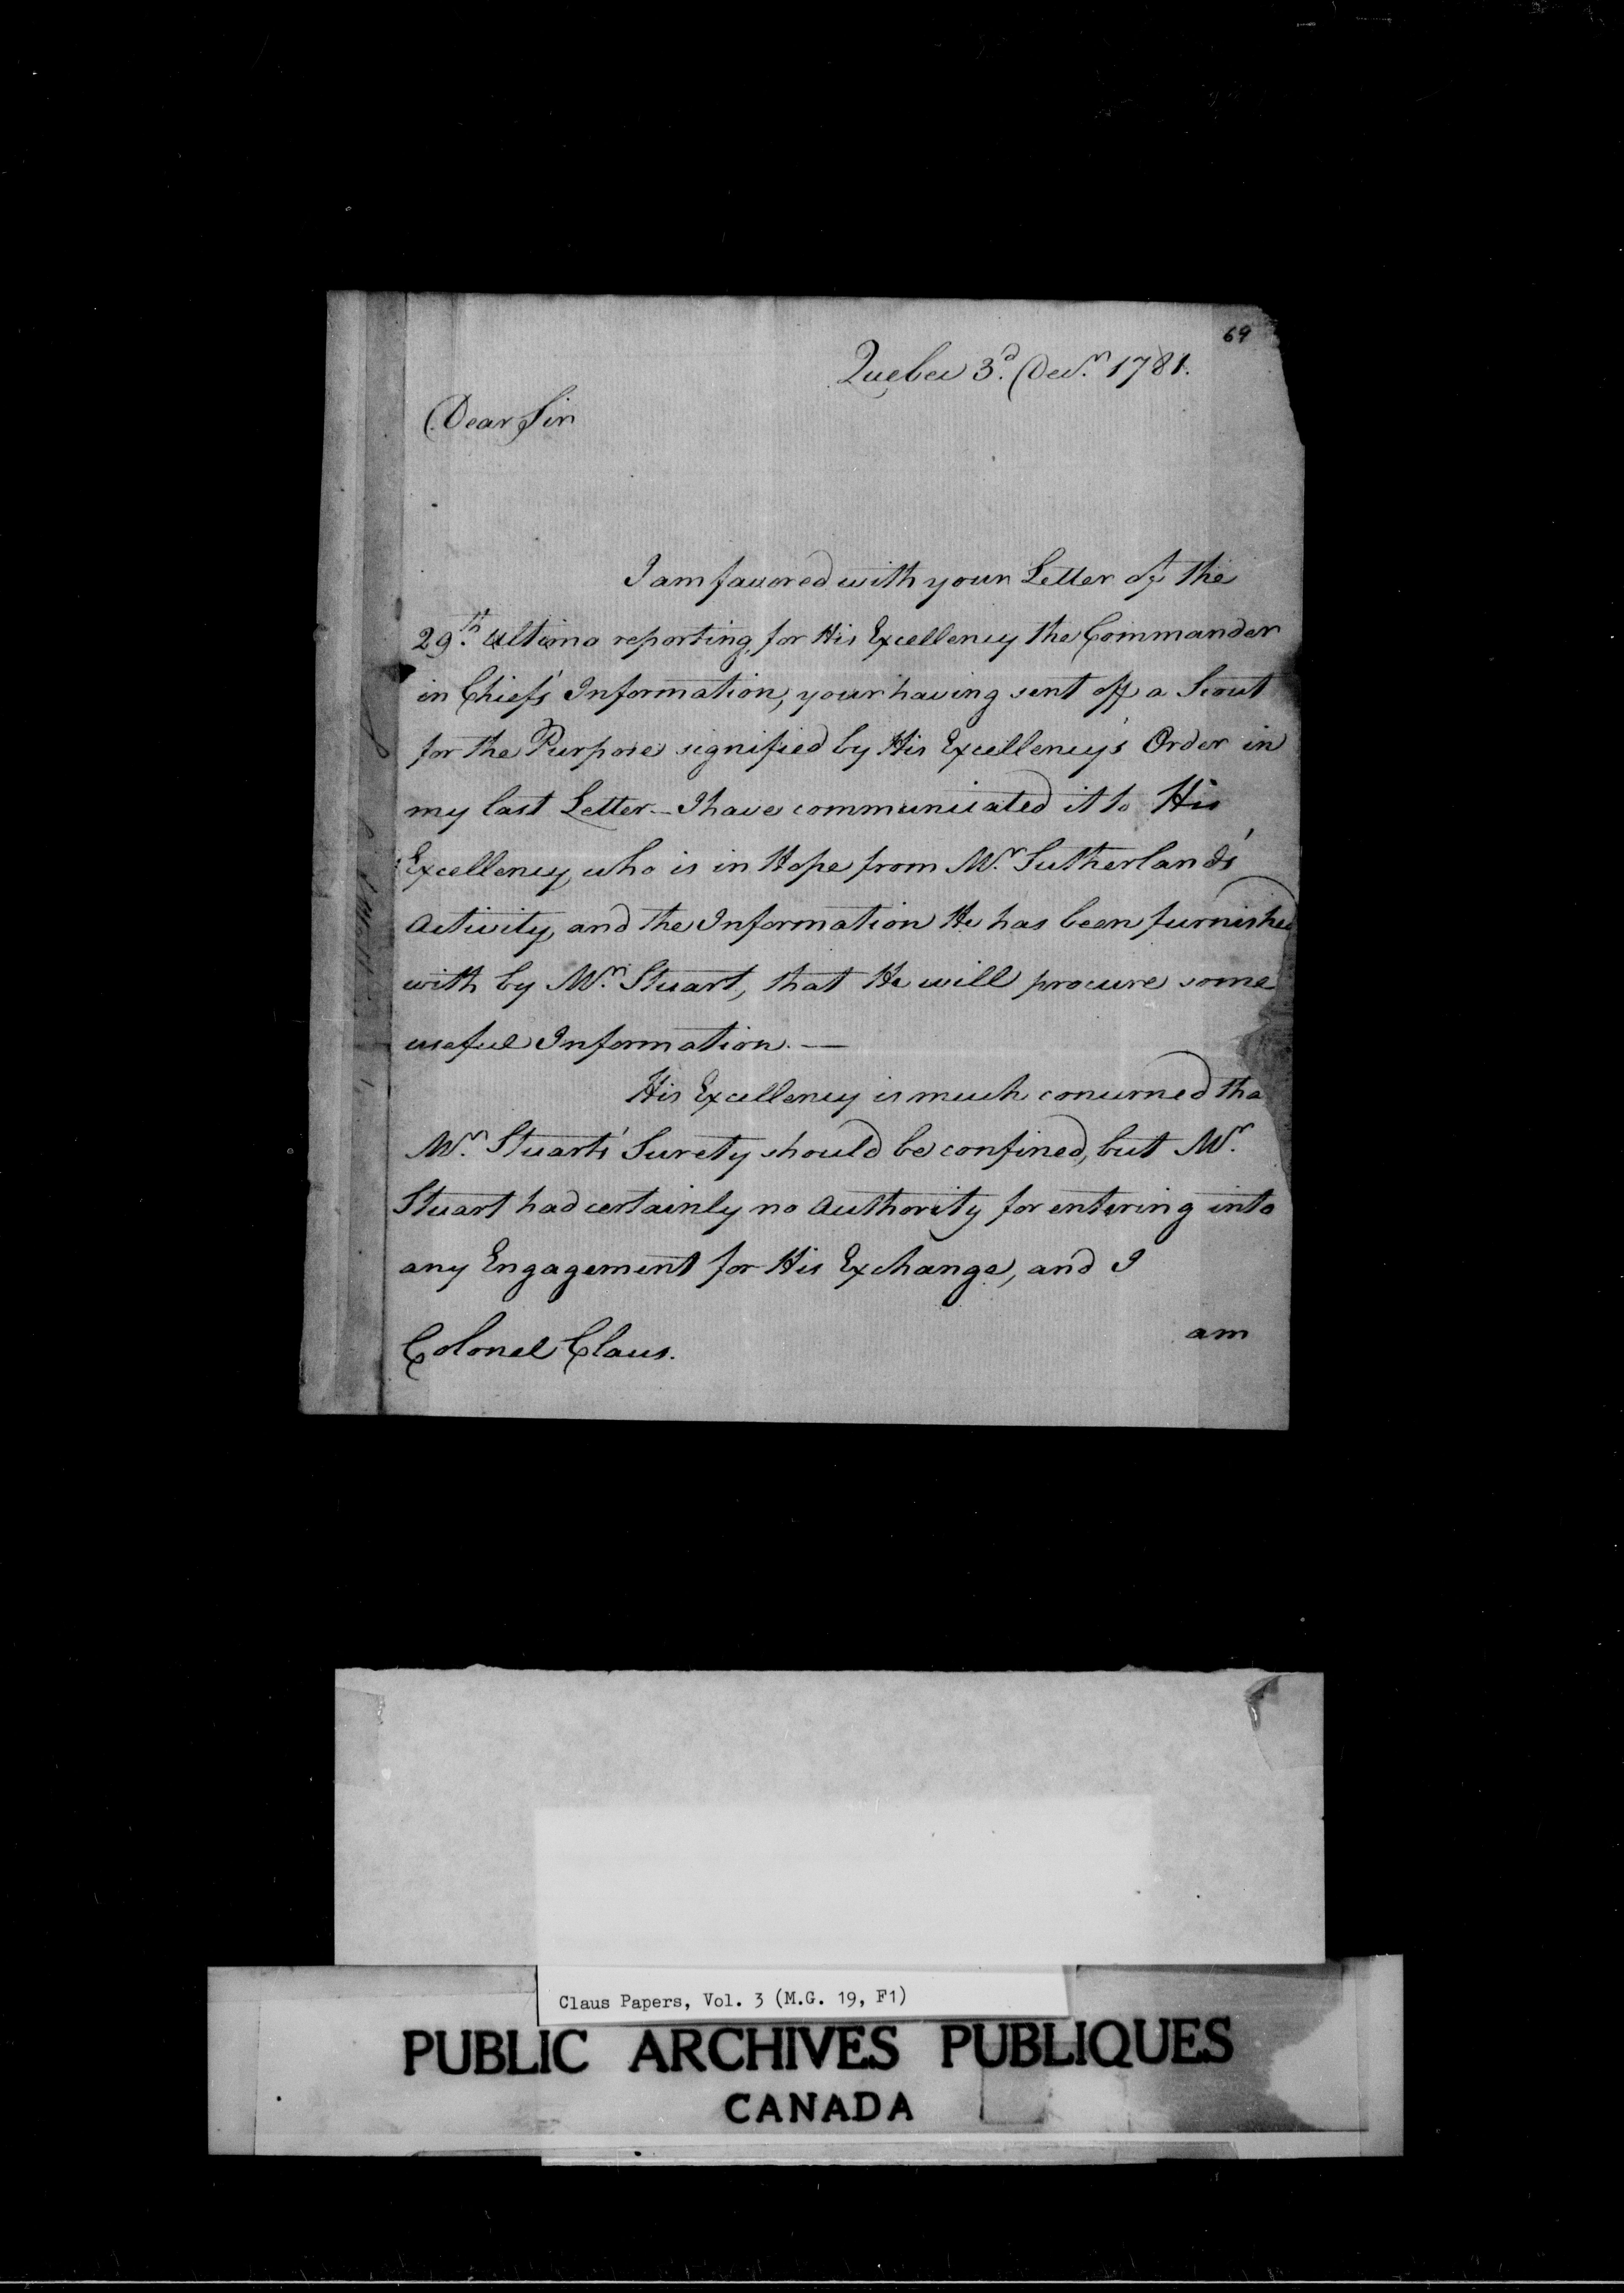 69
Quebec 3d. Decr. 1781.
Dear Sir
I am favored with your Letter of the
29th. Ultimo reporting, for His Excellency the Commander
in Chiefs' Information, your having sent off a Scout
for the Purpose signified by His Excellency's Order in
my last Letter - I have communicated it to His
Excellency, who is in Hope from Mr. Sutherland's
Activity, and the Information He has been furnished
with by Mr. Stuart, that He will procure some
useful Information. —
His Excellency is much concerned tha
Mr. Stuarts' Surety should be confined, but Mr.
Stuart had certainly no Authority for entering into
any Engagement for His Exchange, and I
am
Colonel Claus.
Claus Papers, Vol. 3 (M.G. 19, F1)
PUBLIC ARCHIVES PUBLIQUES
CANADA